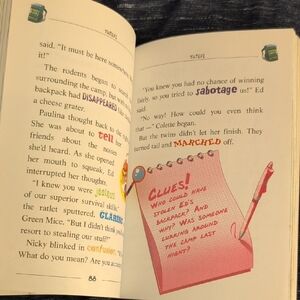 said. "It must be here somewhere
it!"
The rodents began to
surrounding the camp, but
backpack had DISAPPEARED
a cheese grater.
Paulina thought back to the
She was about to tell her
friends about the noises
she'd heard. As she opened
her mouth to squeak, Ed
interrupted her thoughts.
"I knew you were jealous
of our superior survival skills,"
the ratlet sputtered,
Green Mice. "But I didn't think you'd
resort to stealing our stuff!"
Nicky blinked in confusion.
What do you mean? Are you
88
"You knew you had no chance of winning
fairly, so you tried to sabotage us!" Ed
said.
"No way! How could you even think
that —" Colette began.
But the twins didn't let her finish. They
turned tail and MARCHED off.
CLUES!
WHO COULD HAVE
STOLEN ED'S
BACKPACK? AND
WHY? WAS SOMEONE
LURKING AROUND
THE CAMP LAST
NIGHT?